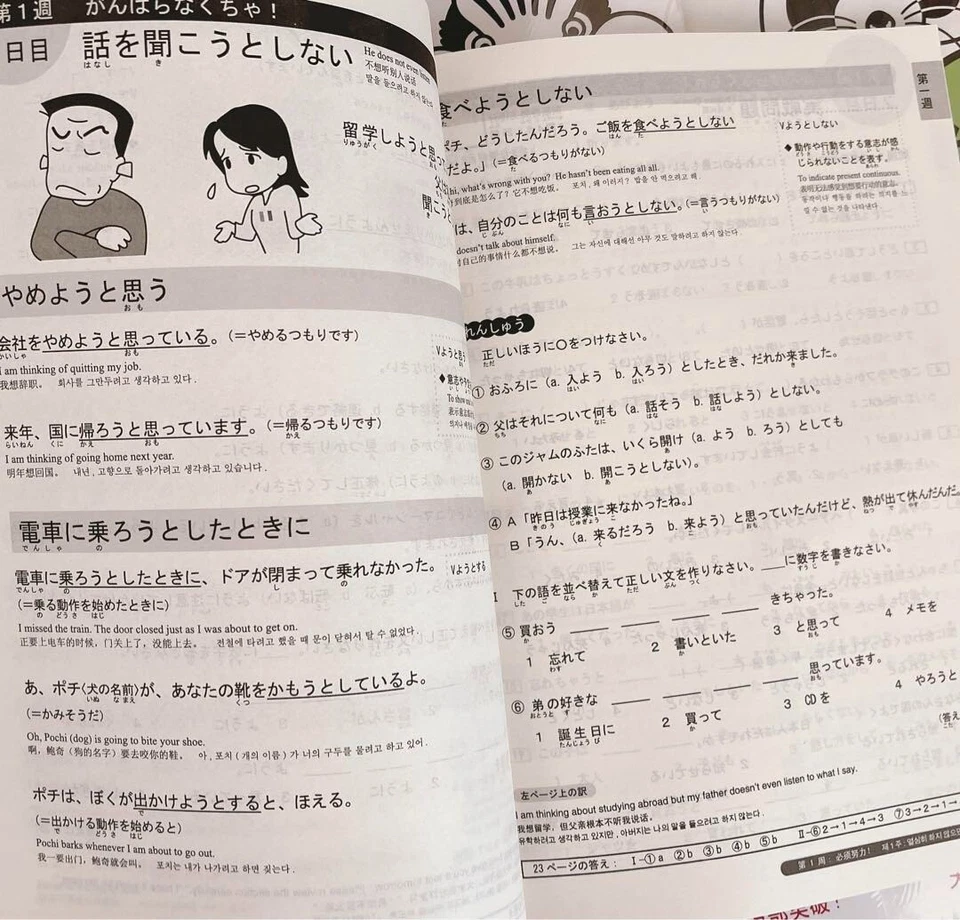 第1週 がんばらなくちゃ！
日目 話を聞こうとしない
はなし き
He does not even listen
不想听别人说话
말을 들으려고 하지 않는다
留学しようと思っ
りゅうがく
聞こ
やめようと思う
おも
会社をやめようと思っている。(＝やめるつもりです)
かいしゃ おも
I am thinking of quitting my job.
我想辞职。 회사를 그만두려고 생각하고 있다.
来年、国に帰ろうと思っています。(＝帰るつもりです)
らいねん くに かえ おも かえ
I am thinking of going home next year.
明年想回国。 내년, 고향으로 돌아가려고 생각하고 있습니다.
Vようと思う
電車に乗ろうとしたときに
でんしゃ の
電車に乗ろうとしたときに、ドアが閉まって乗れなかった。
でんしゃ の し の
(＝乗る動作を始めたときに)
の どうさ はじ
I missed the train. The door closed just as I was about to get on.
正要上电车的时候，门关上了，没能上去。 전철에 타려고 했을 때 문이 닫혀서 탈 수 없었다.
Vようとする
あ、ポチ〈犬の名前〉が、あなたの靴をかもうとしているよ。
いぬ なまえ くつ
(＝かみそうだ)
Oh, Pochi (dog) is going to bite your shoe.
啊，鲍奇（狗的名字）要去咬你的鞋。 아, 포치(개의 이름)가 너의 구두를 물려고 하고 있어.
ポチは、ぼくが出かけようとすると、ほえる。
で
(＝出かける動作を始めると)
で どうさ はじ
Pochi barks whenever I am about to go out.
我一要出门，鲍奇就会叫。 포치는 내가 나가려고 하면 짖는다.
第一週
食べようとしない
た
ポチ、どうしたんだろう。ご飯を食べようとしない
はん た
だよ。」(＝食べるつもりがない)
た
hi, what's wrong with you? He hasn't been eating all.
到底是怎么了？它不想吃饭。 포치, 왜 이러지? 밥을 안 먹으려고 해.
は、自分のことは何も言おうとしない。(＝言うつもりがない)
じぶん なに い い
doesn't talk about himself.
自己的事情什么都不想说。 그는 자신에 대해선 아무 것도 말하려고 하지 않는다.
Vようとしない
◆動作や行動をする意志が感
じられないことを表す。
To indicate present continuous.
表明无法感觉到想要行动的意志。
동작이나 행동을 하려는 의지를 느
낄 수 없는 것을 나타낸다.
れんしゅう
正しいほうに○をつけなさい。
ただ
① おふろに (a. 入よう b. 入ろう) としたとき、だれか来ました。
はい はい き
② 父はそれについて何も (a. 話そう b. 話しよう) としない。
ちち なに はな はな
③ このジャムのふたは、いくら開け (a. よう b. ろう) としても
あ
(a. 開かない b. 開こうとしない)。
あ あ
④ A「昨日は授業に来なかったね。」
きのう じゅぎょう こ
B「うん、(a. 来るだろう b. 来よう) と思っていたんだけど、熱が出て休んだんだ。
く こ おも ねつ で やす
I 下の語を並べ替えて正しい文を作りなさい。___に数字を書きなさい。
した ご なら か ただ ぶん つく すうじ か
⑤ 買おう ___ ___ ___ ___ きちゃった。
か
1 忘れて 2 書いといた 3 と思って 4 メモを
わす か おも
⑥ 弟の好きな ___ ___ ___ ___ 思っています。
おとうと す おも
1 誕生日に 2 買って 3 CDを 4 やろうと
たんじょうび か
(答え
左ページ上の訳
I am thinking about studying abroad but my father doesn't even listen to what I say.
我想留学，但父亲根本不听我说话。
유학하려고 생각하고 있지만, 아버지는 나의 말을 들으려고 하지 않는다.
23 ページの答え： I-①a ②b ③b ④b ⑤b II-⑥2→1→4→3 ⑦3→2→1→
第1周：必须努力！ 제1주：열심히 하지 않으면